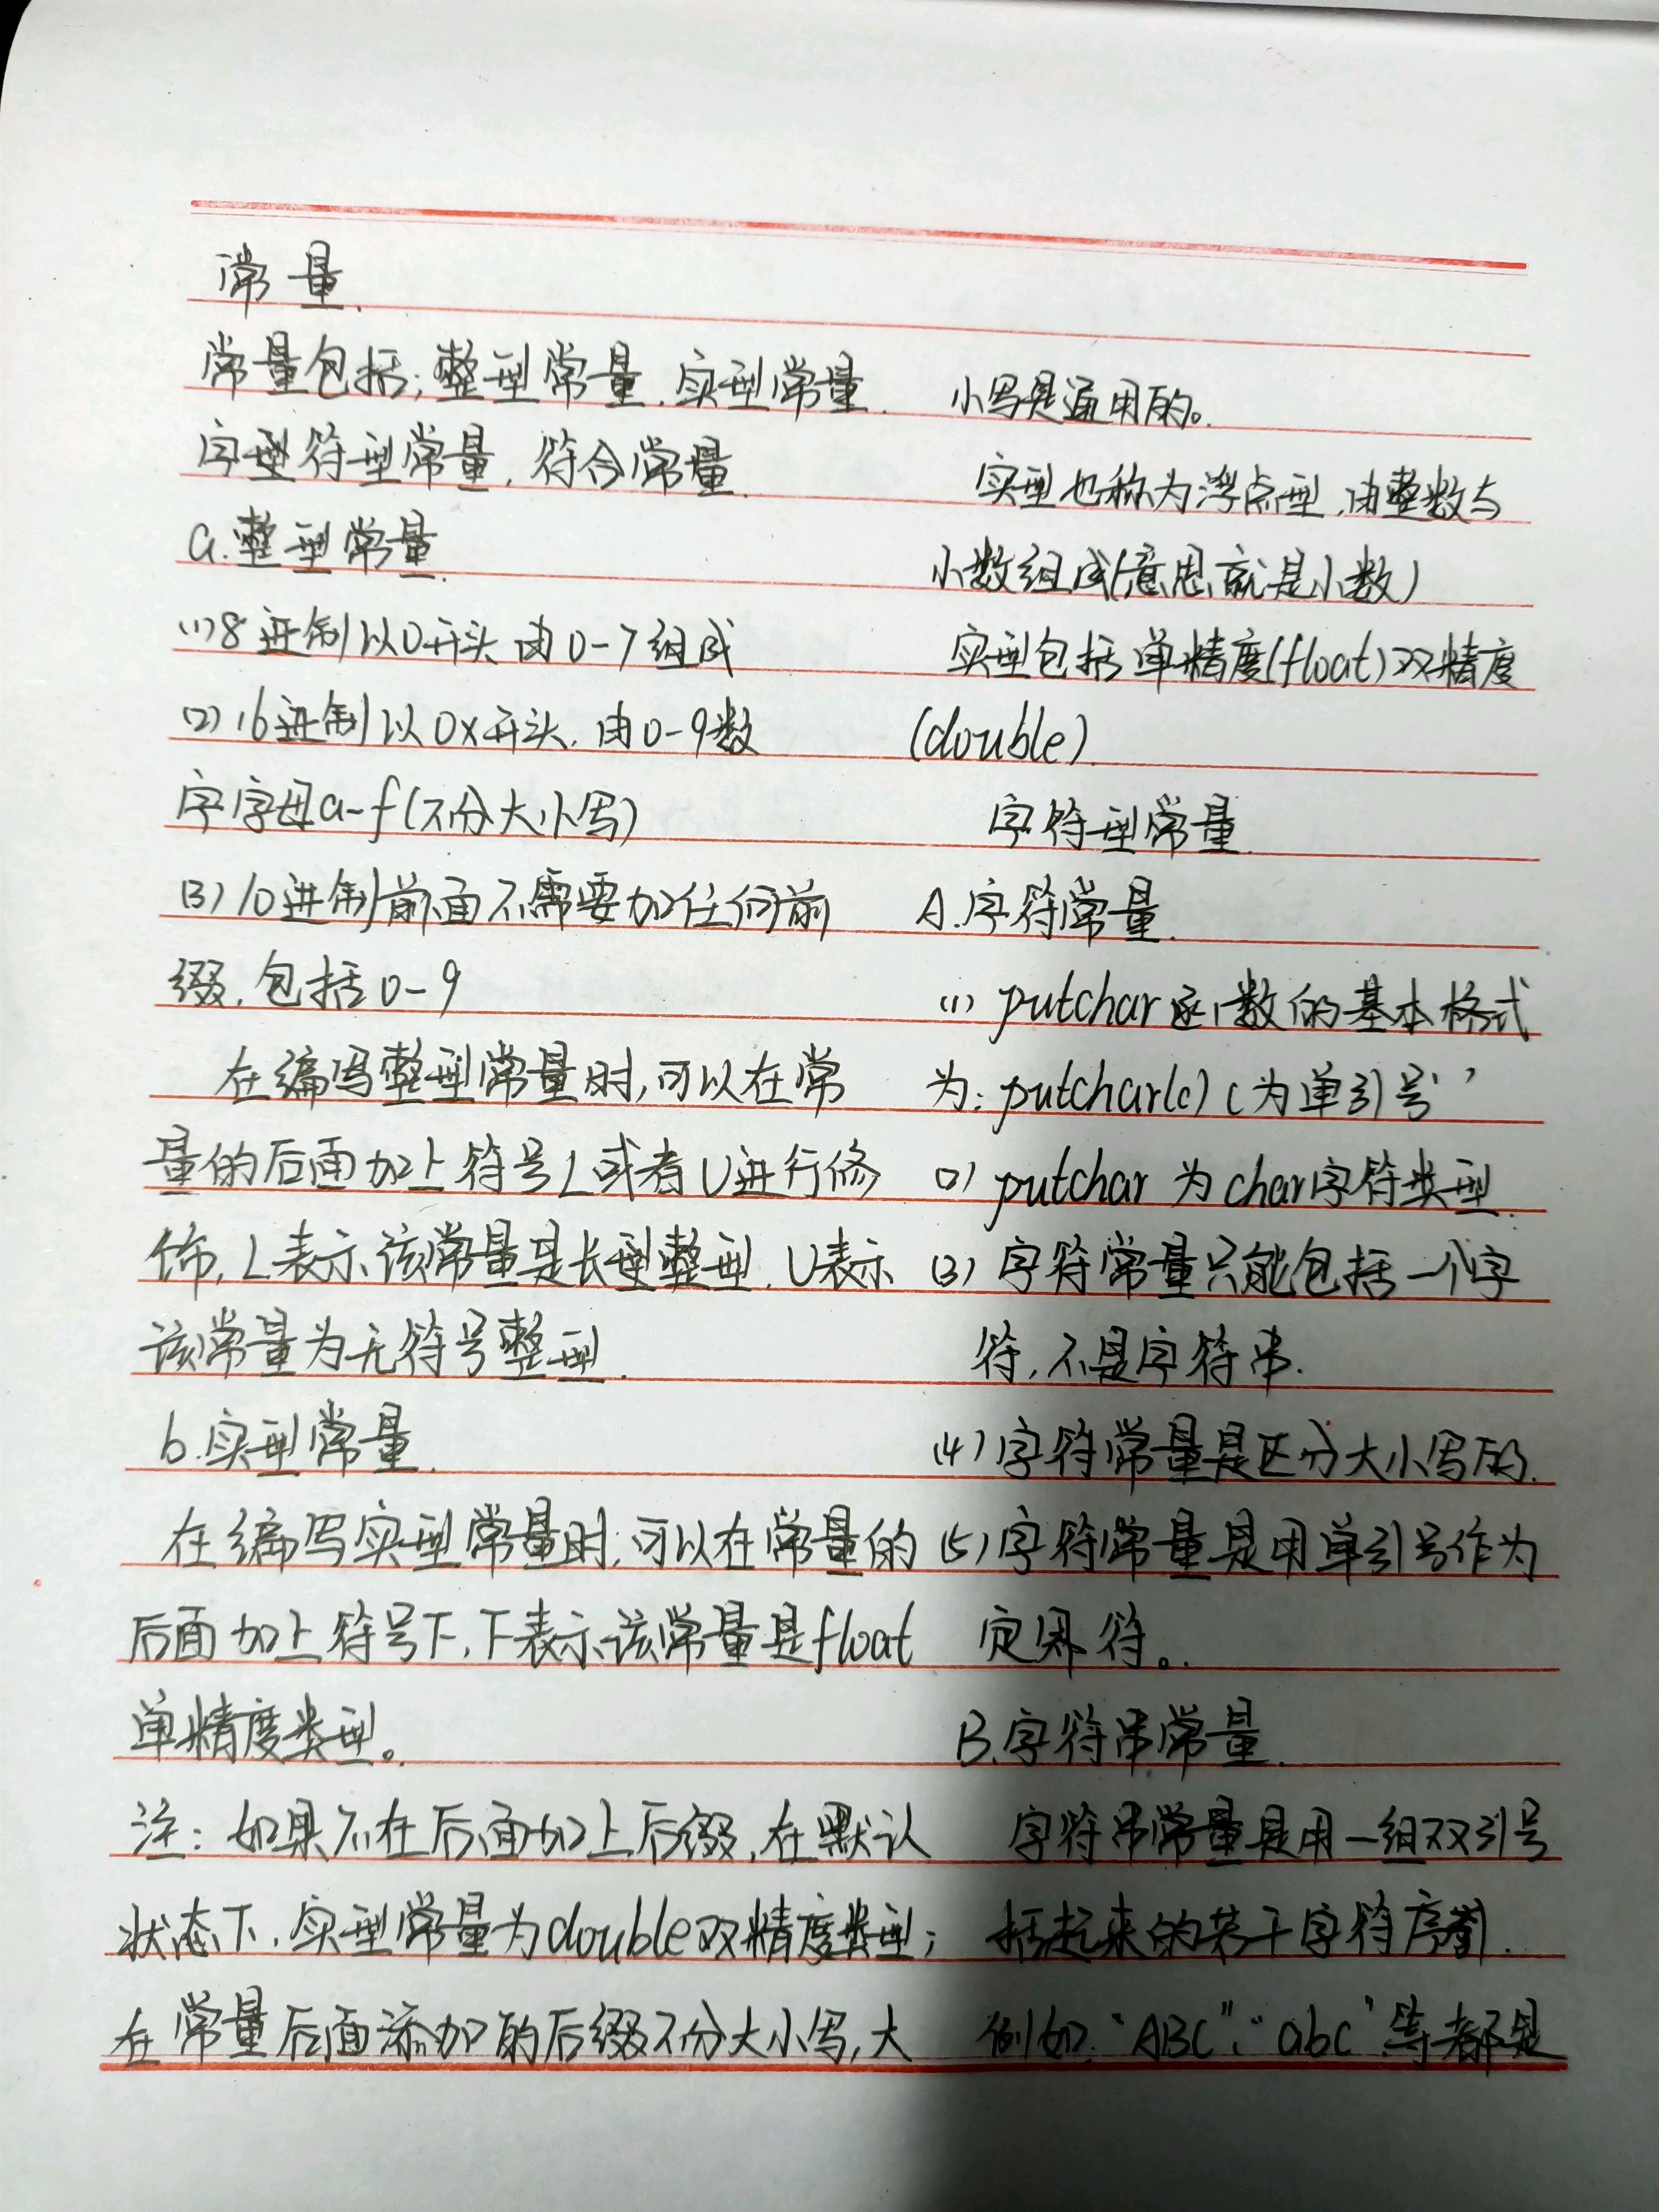 常量.
常量包括;整型常量.实型常量.
字型符型常量,符合常量.
a.整型常量.
(1)8进制以0开头由0-7组成
(2)16进制以0x开头.由0-9数
字字母a-f(不分大小写)
(3)10进制前面不需要加任何前
缀.包括0-9
在编写整型常量时,可以在常
量的后面加上符号L或者U进行修
饰,L表示该常量是长型整型.U表示
该常量为无符号整型.
b.实型常量.
在编写实型常量时,可以在常量的
后面加上符号下,下表示该常量是float
单精度类型。
注:如果不在后面加上后缀,在默认
状态下,实型常量为double双精度类型;
在常量后面添加的后缀不分大小写,大
小写是通用的。
实型也称为浮点型.由整数与
小数组成(意思就是小数)
实型包括单精度(float)双精度
(double).
字符型常量.
A.字符常量.
(1) putchar函数的基本格式
为:putchar(c)(为单引号' '
(2) putchar 为char字符类型.
(3) 字符常量只能包括一个字
符,不是字符串.
(4)字符常量是区分大小写的.
(5)字符常量是用单引号作为
定界符。
B.字符串常量.
字符串常量是用一组双引号
括起来的若干字符序列.
例如:“ABC”,“abc”等都是